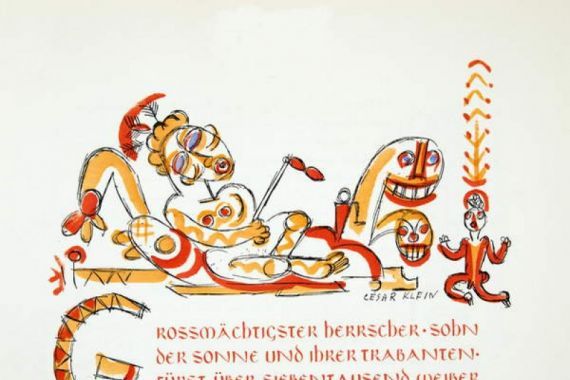 CÉSAR KLEIN
GROSSMÄCHTIGSTER HERRSCHER · SOHN
DER SONNE UND IHRER TRABANTEN ·
FÜRST ÜBER SIEBENTAUSEND WEIBER